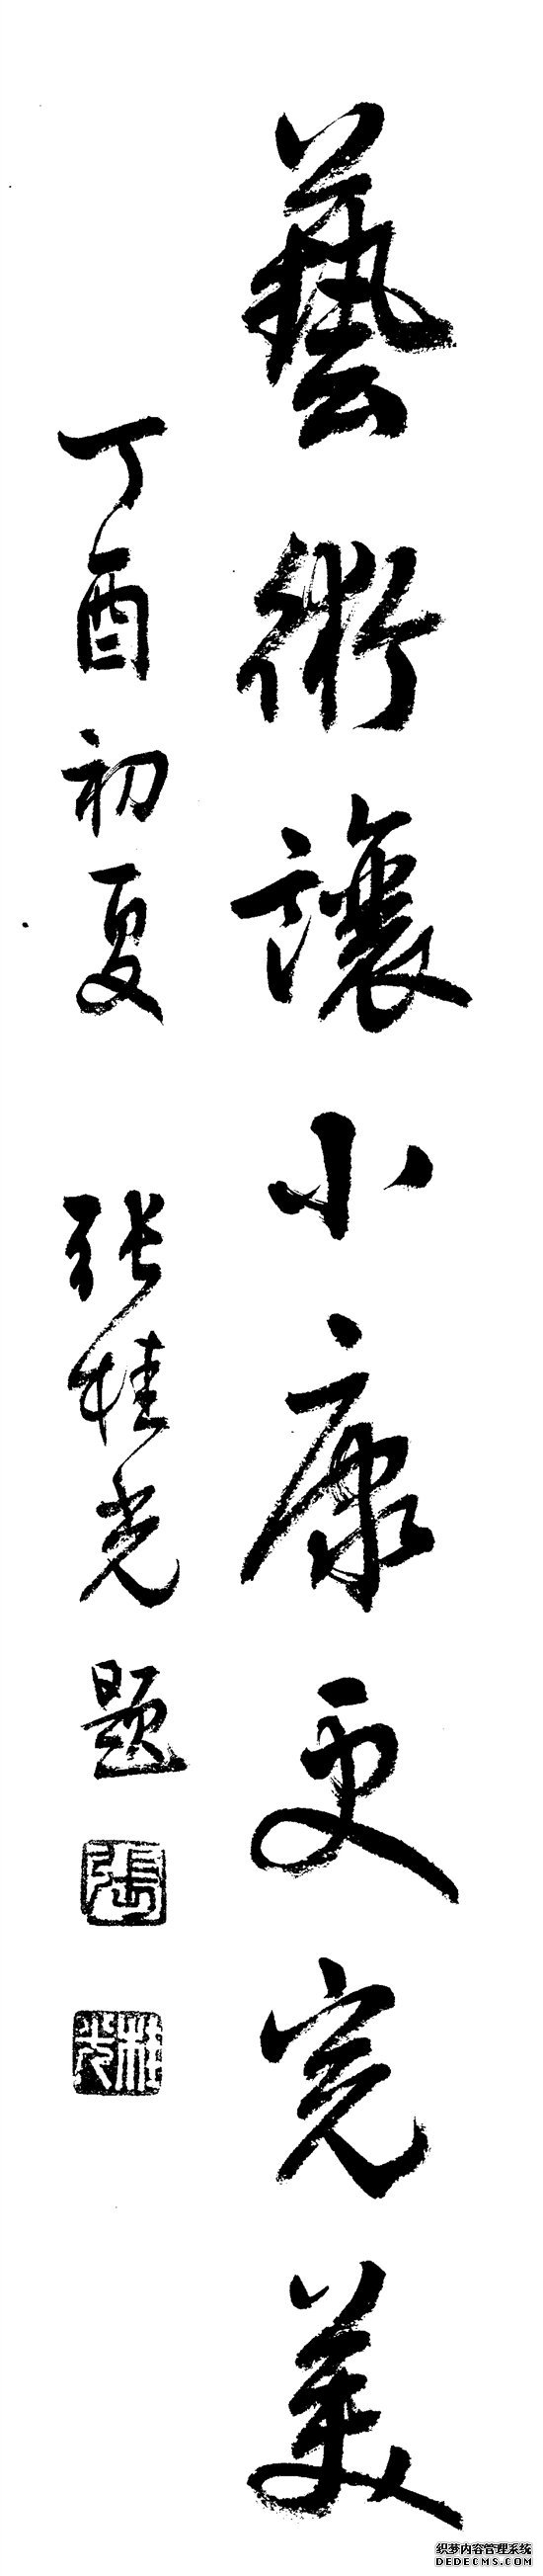 藝術讓小康更完美
丁酉初夏 张桂光題
張
桂光
织梦内容管理系统
DEDECMS.COM